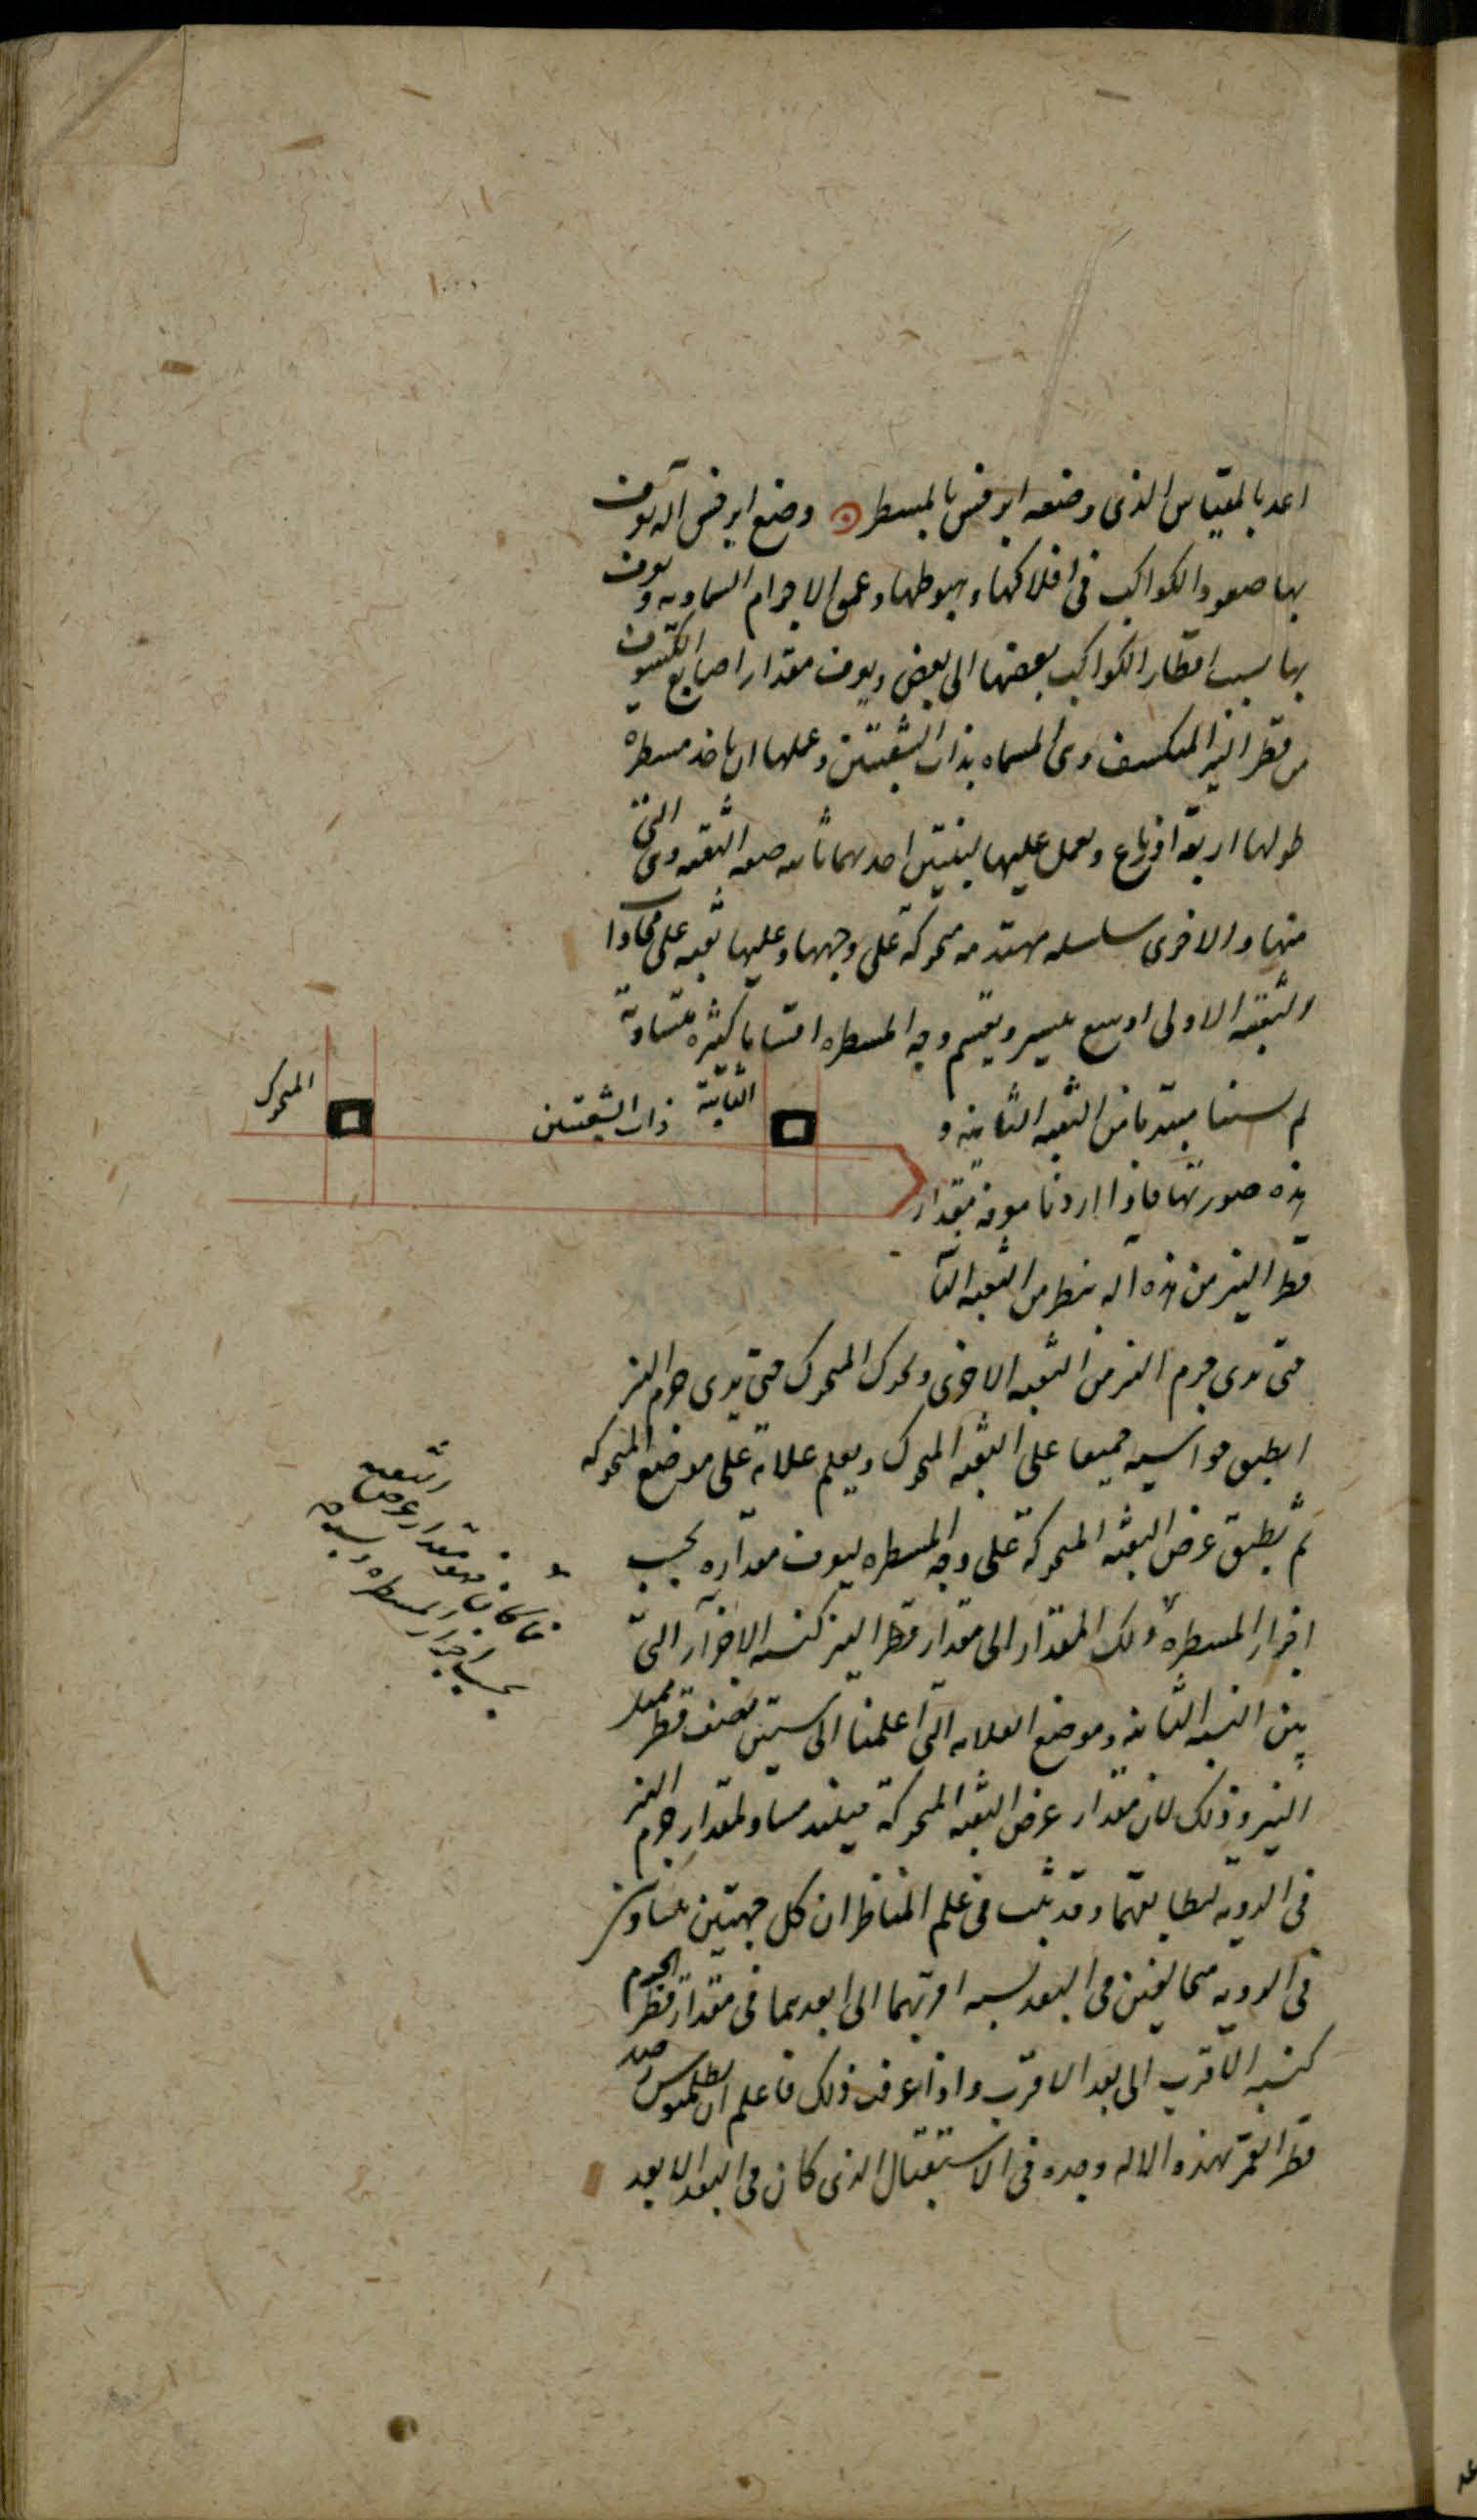 اعد بالمقياس الذى وضعه ابرخس بالمسطره وضع ابرخس آله يعرف
بها صعود الكواكب فى افلاكها وهبوطها وعمق الاجرام السماويه ويعرف
بها نسب اقطار الكواكب بعضها الى بعض ويعرف مقدار اصابع الكسوف
من قطر النير المنكسف وهى المسماه بذات الثقبتين وعملها ان ياخذ مسطره
طولها اربعة اذرع ويعمل عليها لبنتين احديهما ثابته ضيقه الثقبه وهى التى
منها والاخرى سلسله مهندمه متحركة على وجهها وعليها ثقبه على محاذاة
الثقبه الاولى اوسع بيسير ويقسم وجه المسطره اقساما كثيره متساوية
لم سنا مبتديا من الثقبه الثابته و
هذه صورتها فاذا اردنا معرفة مقدار
قطر النير من هذه آله ينظر من الثقبه الثا
حتى يرى جرم النير من الثقبه الاخرى ويحرك المتحرك حتى يرى جرم النير
انطبق حواشيه جميعا على الثقبه المتحرك ويعلم علامة على موضع المتحركه
ثم يطبق عرض الثقبه المتحركة على وجه المسطره ليعرف مقداره بحسب
اجزاء المسطره ذلك المقدار الى مقدار قطر النير كنسبه الاجزآء التى
بين الثقبه الثابته وموضع العلامه التى اعلمنا الى ستين نصف قطر
النير وذلك لان مقدار عرض الثقبه المتحركة حينئذ مساو لمقدار جرم النير
فى الرويه لتطابقهما وقد ثبت فى علم المناظر ان كل جهتين متساويتين
فى الرويه متخالفين فى البعد نسبه اقربهما الى ابعدهما فى مقدار قطر الجرم
كنسبه الاقرب الى بعد الاقرب واذا عرفت ذلك فاعلم ان بطلميوس رصد
قطر القمر بهذه الاله وجده فى الاستقبال الذى كان فى البعد الابعد
المتحرك
ذات الثقبتين
الثابتة
الثقبه
فما كان فهو مقدار عرض
بحسب اجزاء المسطره ونسبه